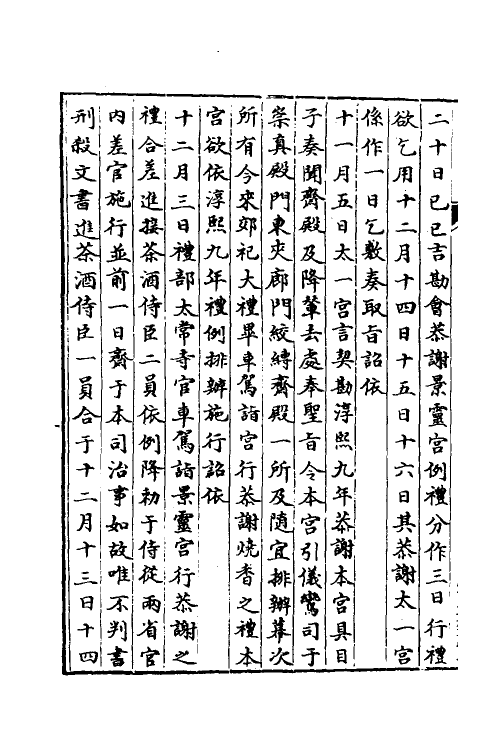 二十日已已吉勘會恭謝景靈宮例禮分作三日行禮
欲乞用十二月十四日十五日十六日其恭謝太一宮
係作一日乞敷奏取旨詔依
十一月五日太一宮言契勘淳熙九年恭謝本宮具目
子奏聞齋殿及降輦去處奉聖旨令本宮引儀鸞司于
崇真殿門東夾廊門絞縳齋殿一所及隨宜排辦幕次
所有今來郊祀大禮畢車駕詣宮行恭謝燒香之禮本
宮欲依淳熙九年禮例排辦施行詔依
十二月三日禮部太常寺官車駕詣景靈宮行恭謝之
禮合差進接茶酒侍臣二員依例降勑于侍從兩省官
内差官施行並前一日齋于本司治事如故唯不判書
刑殺文書進茶酒侍臣一員合于十二月十三日十四